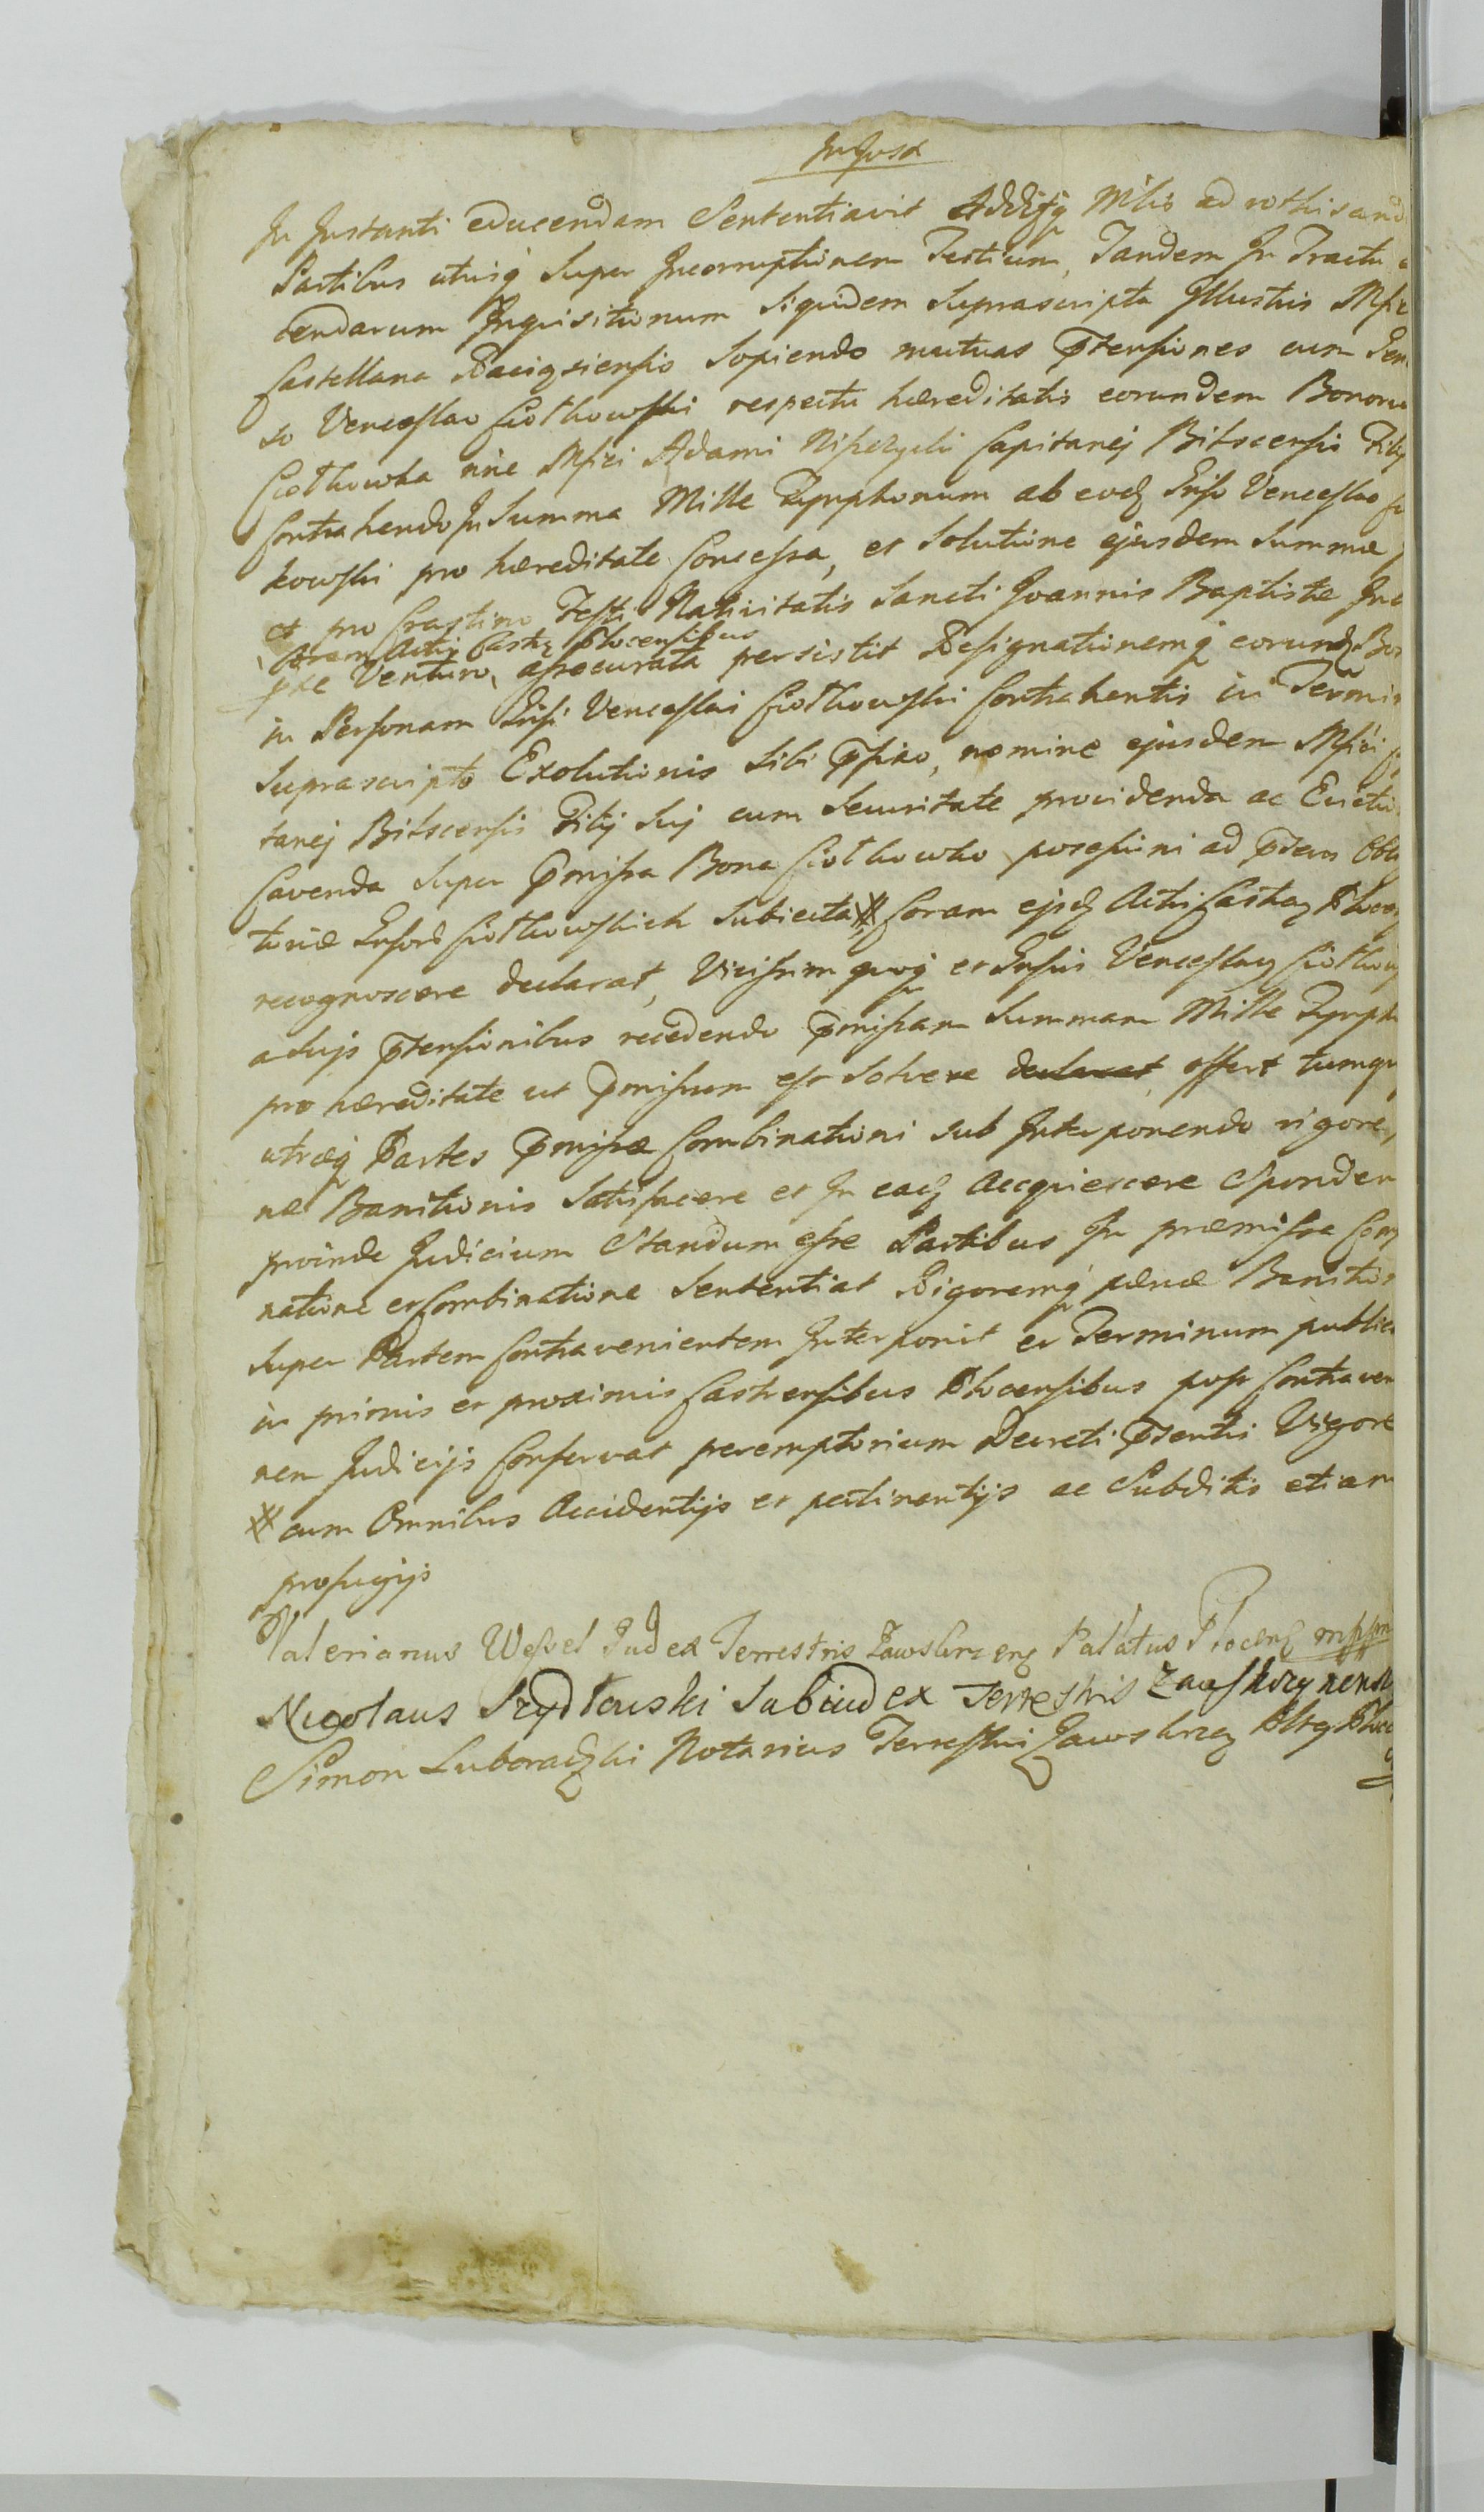 In Instanti educendam Sententiavit Additq Mtis ad rothisand
Partibus utrisq Super Incorruptionem Testium, Tandem In Tractu
cendarum Inquisitionum Siquidem Suprascripta Illustris Mfic
Castellana Raciązsiensis Sopiendo mutuas Ptensiones cum Gen
so Venceslao Ciołkowski respectu hæreditatis eorundem Bonoru
Ciołkowka nne Mfici Adami Niszczycki Capitanej Bitscensis Filij
Contrahendo In Summa Mille Tymphonum ab eodȝ Gnso Venceslao Cio
kowski pro hæreditate Concessa, et Solutione ejusdem Summæ
et pro Crastino Festi Nativitatis Sancti Joannis Baptistæ In
Coram Actis Castr Plocensibus
pxe Venturo, assecurata persistit Resignationemq eorundȝ Bon
in Personam Gnsi Venceslai Ciołkowski Contrahentis in Termin
Suprascripto Exolutionis Sibi Pfixo, nomine ejusdem Mfici
tanej Bitscensis Filij Sui cum Securitate providenda ac Evictio
Cavenda Super Pmissa Bona Ciołkowko possessioni ad Ptens Obli
toriæ Gnsord Ciołkowskich Subiecta # Coram ejsdȝ Actis Castrȝ Ploce
recognoscere declarat, Vicissim quoq et Gnsus Venceslaus Ciołkow
a Suis Ptensionibus recedendo Pmissam Summam Mille Tymph
pro hæreditate ut Pmissum est Solvere declarat offert tumq
utræq Partes Pmissæ Combinationi sub Interponendo rigore
næ Banitionis Satisfacere et In eadȝ Acquiescere Sponden
proinde Judicium Standum esse Partibus In præmissa Con
natione et Combinatione Sententiat Rigoremq pænæ Banitio
Super Partem Contravenientem Interponit et Terminum public
in primis et proximis Castrensibus Plocensibus post Contraven
nem Judicijs Conservat peremptorium Decreti Psentis Vigore
# cum Omnibus Accidentijs et pertinentijs ac Subditis etiam
profugijs
Valerianus Wessel Judex Terrestris Zawskrzenȝ Palatus Plocenȝ mppm
Nicolaus Szydłowski Subiudex Terrestris Zawskrzynensis
Simon Luboradzki Notarius Terrestris Zawskrzȝ Pltȝ Ploc